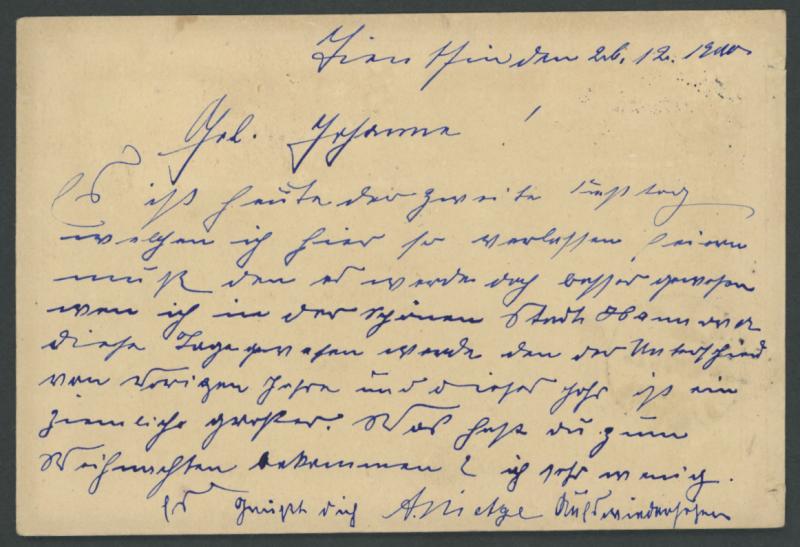 Tientsin den 26. 12. 1900
Gel. Johanna!
Es ist heute der zweite Festtag
welchen ich hier so verlassen feiern
muß den es werde doch besser gewesen
wen ich in der schönen Stadt Hannover
diese Tage gewesen werde den der Unterschied
von vorigen Jahre und dieses Jahr ist ein
ziemlicher großer. Was hast du zum
Weihnachten bekommen? ich sehr wenig.
Es grüßt dich A. Nietge Aufwiedersehen